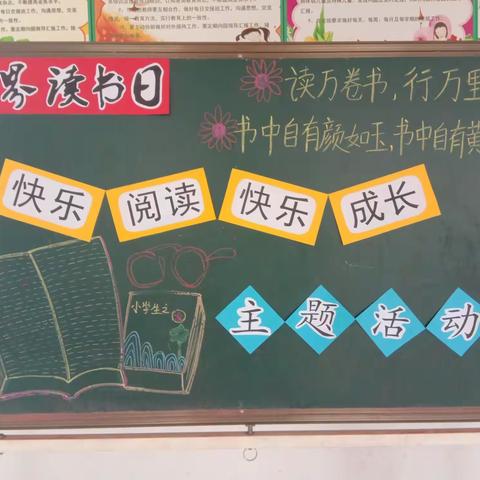 界读书日
读万卷书，行万里
书中自有颜如玉，书中自有黄
快乐 阅读 快乐 成长
小学生之
主题活动